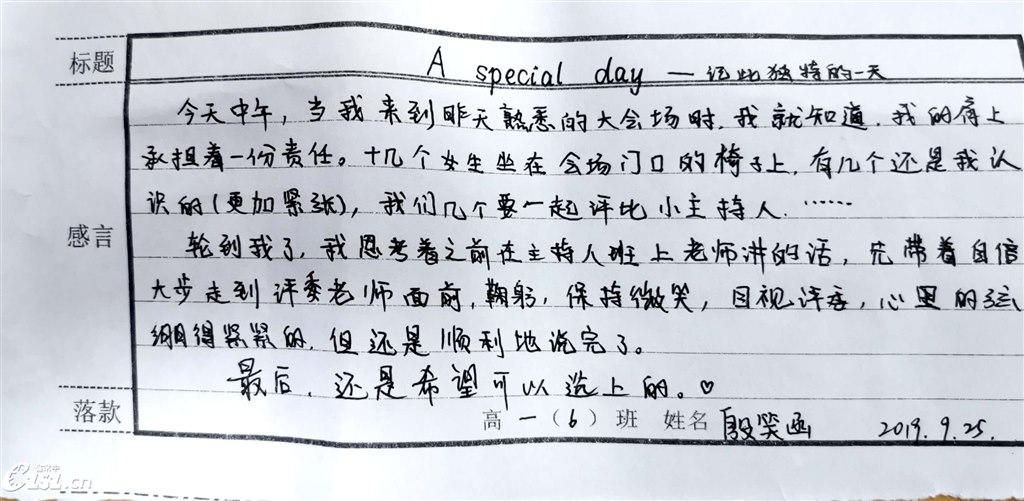 标题
A special day — 记此独特的一天
今天中午，当我来到昨天熟悉的大会场时，我就知道，我的肩上
承担着一份责任。十几个女生坐在会场门口的椅子上，有几个还是我认
识的（更加紧张），我们几个要一起评比小主持人……
感言
轮到我了，我思考着之前在主持人班上老师讲的话，先带着自信
大步走到评委老师面前，鞠躬，保持微笑，目视评委，心里的弦
绷得紧紧的，但还是顺利地说完了。
最后，还是希望可以选上的。♡
落款
高一（6）班 姓名 殷笑函 2019.9.25.
C1S1.cn